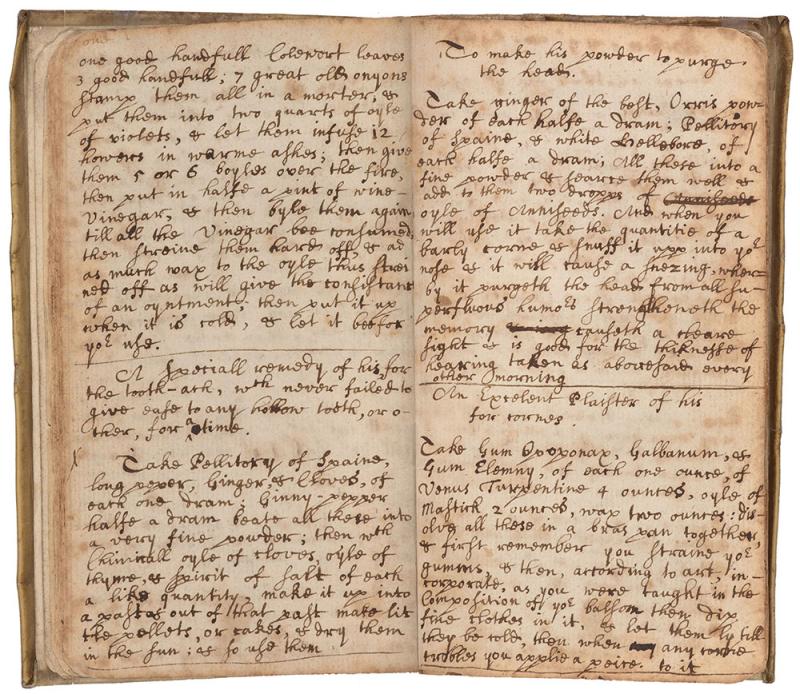 one
one good handfull Colewort leaves
3 good handfull; 7 great old onyons
stamp them all in a morter, &
put them into two quarts of oyle
of violets, & let them infuse 12
howers in warme ashes; then give
them 5 or 6 boyles over the fire,
then put in halfe a pint of wine-
Vinegar, & then boyle them again
till all the Vinegar bee consumed,
then streine them hard off, & ad
as much wax to the oyle thus strei
ned off as will give the consistanc
of an oyntment; then put it up
when it is cold, & let it bee for
yor use.
A Speciall remedy of his for
the tooth-ach, wch never failed to
give ease to any hollow tooth, or o-
ther, for a time.
Take Pellitory of Spaine,
long peper, Ginger, & Cloves, of
each one dram; Ginny-pepper
halfe a dram beate all these into
a very fine powder; then wth
Chimicall oyle of cloves, oyle of
thyme, & spirit of salt of each
a like quantity, make it up into
a past & out of that past make lit
tle pellets, or cakes, & dry them
in the sun: & so use them
To make his powder to purge
the head.
Take ginger of the best, Orris pow-
der of each halfe a dram; Pellitory
of Spaine, & white Hellebore, of
each halfe a dram; All these into a
fine powder & searce them well &
add to them two dropps of Anniseeds
oyle of Anniseeds. And when you
will use it take the quantitie of a
barly corne & snuff it upp into yor
nose & it will cause a snezing, wher-
by it purgeth the head from all su-
perfluous humors strengtheneth the
memory causeth a cleare
sight & is good for the thiknesse of
hearing taken as abovesaid every
other morning
An Excelent Plaister of his
for cornes.
Take Gum Opoponax, Galbanum, &
Gum Elemny, of each one ounce, of
Venus Turpentine 4 ounces, oyle of
Mastick 2 ounces, wax two ounces: dis-
olve all these in a bras pan together,
& first remember you straine yor
gumms, & then, according to art, in-
corporate, as you were taught in the
Composition of yor balsom then dip
fine clothes in it, & let them ly till
they be cold, then when any corne
trobles you applie a peice. to it